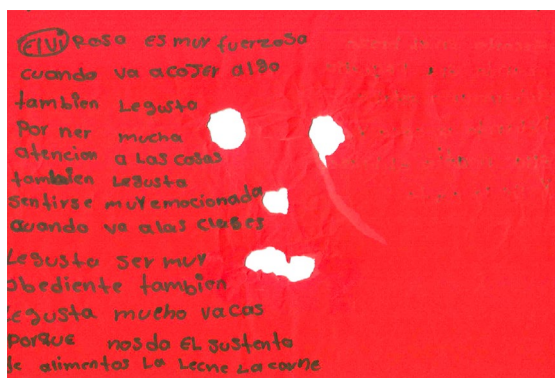 ElVi Roso es muy fuerzoso
cuando va acoJer algo
tambien Legusta
Por ner mucha
atencion a Las cosas
tambien Legusta
sentirse muy emocionada
cuando va alas clases
Legusta ser muy
obediente tambien
Legusta mucho vacas
PorQue nosda EL sustento
de alimentos La Leche La carne